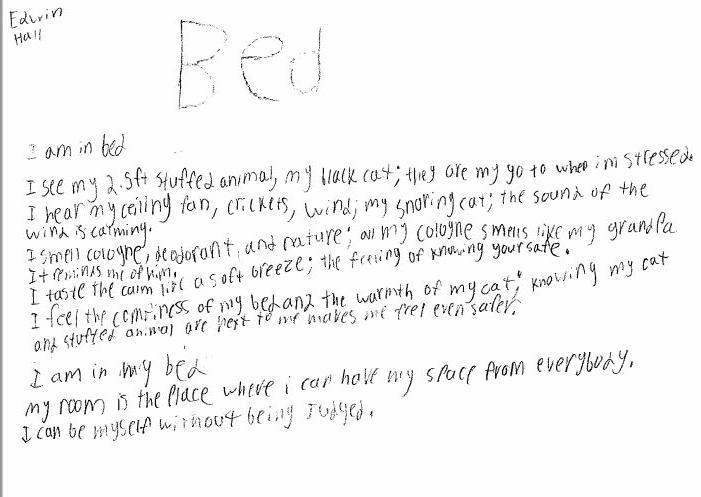 Edwin
Hall
Bed
I am in bed
I see my 2.5ft stuffed animal, my black cat; they are my go to when im stressed.
I hear my ceiling fan, crickets, wind; my snoring cat; the sound of the
wind is calming.
I smell cologne, deodorant, and nature; all my cologne smells like my grandpa
It reminds me of him.
I taste the calm like a soft breeze; the feeling of knowing your safe.
I feel the comfiness of my bed and the warmth of my cat; knowing my cat
and stuffed animal are next to me makes me feel even safer.
I am in my bed
my room is the place where i can have my space from everybody.
I can be myself without being Judged.